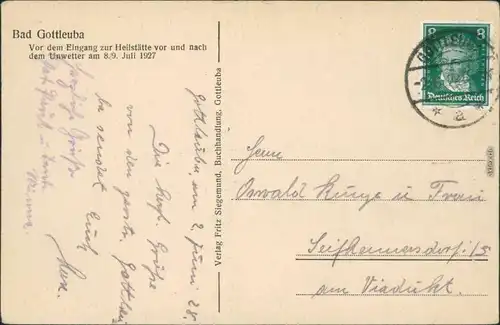 Bad Gottleuba
Vor dem Eingang zur Heilstätte vor und nach
dem Unwetter am 8./9. Juli 1927
8 8
Deutsches Reich
Gottleuba, am 2. Juni 28.
Die herzl. Grüße
von den
sendet Euch
Max.
Herzliche Grüße
Verlag Fritz Siegemund, Buchhandlung, Gottleuba
Herrn
Oswald Kunze u Frau
Seifhennersdorf i/S
am Viadukt.